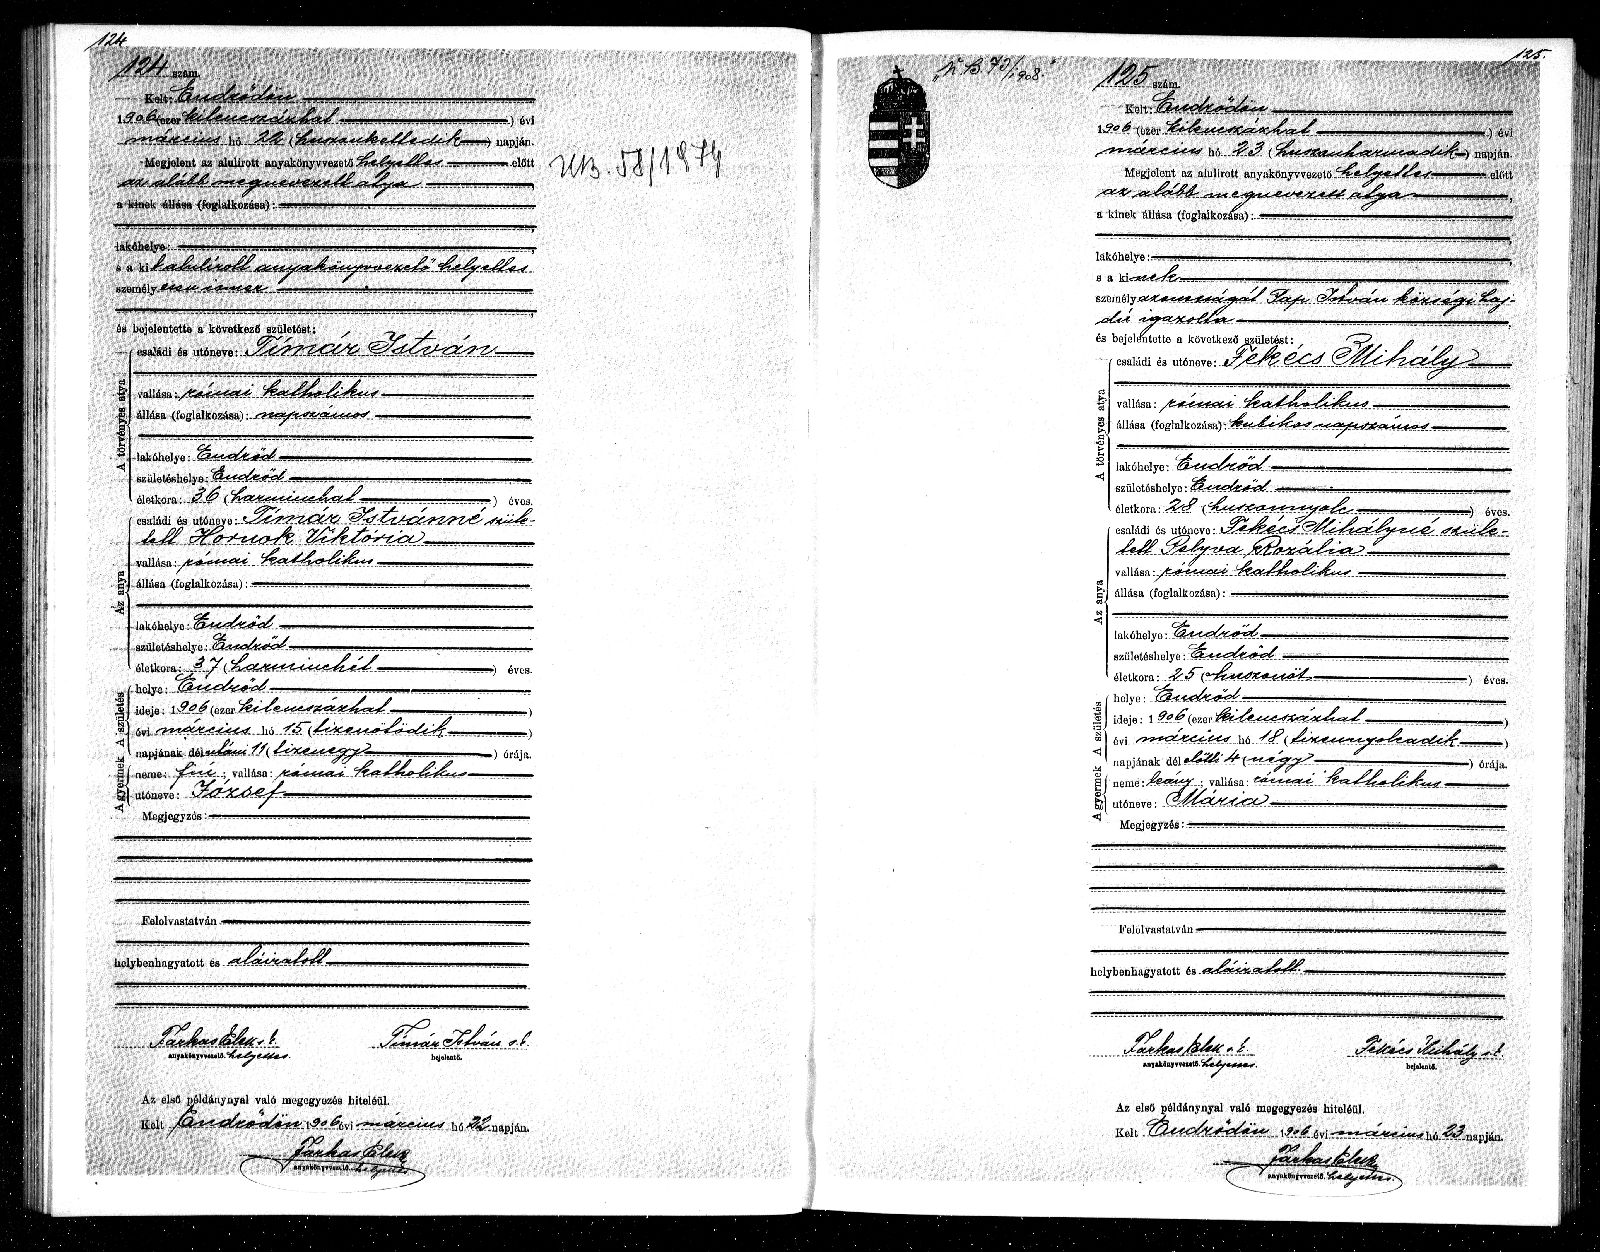 124
124 szám.
Kelt: Endrődön
1906 (ezer kilencszázhat) évi
március hó 22 (huszonkettedik) napján.
Megjelent az alulirott anyakönyvvezető helyettes előtt
az alább megnevezett atya
a kinek állása (foglalkozása):
lakóhelye:
s a kit alulírott anyakönyvvezető helyettes
személyesen ismer
és bejelentette a következő születést:
A törvényes atya
családi és utóneve: Tímár István
vallása: római katholikus
állása (foglalkozása): napszámos
lakóhelye: Endrőd
születéshelye: Endrőd
életkora: 36 (harminchat) éves.
Az anya
családi és utóneve: Tímár Istvánné szüle-
tett Hornok Viktória
vallása: római katholikus
állása (foglalkozása):
lakóhelye: Endrőd
születéshelye: Endrőd
életkora: 37 (harminchét) éves.
A születés
helye: Endrőd
ideje: 1906 (ezer kilencszázhat)
évi március hó 15 (tizenötödik)
napjának dél utáni 11 (tizenegy) órája.
A gyermek
neme: fiú; vallása: római katholikus
utóneve: József
Megjegyzés:
Felolvastatván
helybenhagyatott és aláíratott
Farkas Elek s. k. Tímár István s. k.
anyakönyvvezető. helyettes. bejelentő.
Az első példánynyal való megegyezés hiteléül.
Kelt Endrődön 1906 évi március hó 22 napján.
Farkas Elek
anyakönyvvezető. helyettes.
58/1974
125.
73/1908
125 szám.
Kelt: Endrődön
1906 (ezer kilencszázhat) évi
március hó 23 (huszonharmadik) napján.
Megjelent az alulirott anyakönyvvezető helyettes előtt
az alább megnevezett atya
a kinek állása (foglalkozása):
lakóhelye:
s a kinek
személyazonosságát Pap István községi haj-
dú igazolta
és bejelentette a következő születést:
A törvényes atya
családi és utóneve: Fekécs Mihály
vallása: római katholikus
állása (foglalkozása): kubikos napszámos
lakóhelye: Endrőd
születéshelye: Endrőd
életkora: 28 (huszonnyolc) éves.
Az anya
családi és utóneve: Fekécs Mihályné szüle-
tett Pelyva Rozália
vallása: római katholikus
állása (foglalkozása):
lakóhelye: Endrőd
születéshelye: Endrőd
életkora: 25 (huszonöt) éves.
A születés
helye: Endrőd
ideje: 1906 (ezer kilencszázhat)
évi március hó 18 (tizennyolcadik)
napjának dél előtti 4 (négy) órája.
A gyermek
neme: leány; vallása: római katholikus
utóneve: Mária
Megjegyzés:
Felolvastatván
helybenhagyatott és aláíratott.
Farkas Elek s. k. Fekécs Mihály s. k.
anyakönyvvezető. helyettes. bejelentő.
Az első példánynyal való megegyezés hiteléül.
Kelt Endrődön 1906 évi március hó 23 napján.
Farkas Elek
anyakönyvvezető. helyettes.